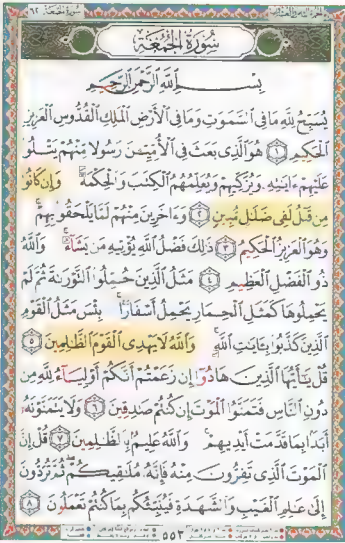 سُورَةُ الجُمُعَةِ
بِسْمِ اللَّهِ الرَّحْمَٰنِ الرَّحِيمِ
يُسَبِّحُ لِلَّهِ مَا فِي السَّمَٰوَٰتِ وَمَا فِي الْأَرْضِ الْمَلِكِ الْقُدُّوسِ الْعَزِيزِ
الْحَكِيمِ ١ هُوَ الَّذِي بَعَثَ فِي الْأُمِّيِّينَ رَسُولًا مِنْهُمْ يَتْلُو
عَلَيْهِمْ ءَايَٰتِهِ وَيُزَكِّيهِمْ وَيُعَلِّمُهُمُ الْكِتَٰبَ وَالْحِكْمَةَ وَإِنْ كَانُوا
مِنْ قَبْلُ لَفِي ضَلَٰلٍ مُبِينٍ ٢ وَءَاخَرِينَ مِنْهُمْ لَمَّا يَلْحَقُوا بِهِمْ
وَهُوَ الْعَزِيزُ الْحَكِيمُ ٣ ذَٰلِكَ فَضْلُ اللَّهِ يُؤْتِيهِ مَنْ يَشَاءُ وَاللَّهُ
ذُو الْفَضْلِ الْعَظِيمِ ٤ مَثَلُ الَّذِينَ حُمِّلُوا التَّوْرَىٰةَ ثُمَّ لَمْ
يَحْمِلُوهَا كَمَثَلِ الْحِمَارِ يَحْمِلُ أَسْفَارًا بِئْسَ مَثَلُ الْقَوْمِ
الَّذِينَ كَذَّبُوا بِـَٔايَٰتِ اللَّهِ وَاللَّهُ لَا يَهْدِي الْقَوْمَ الظَّٰلِمِينَ ٥
قُلْ يَٰأَيُّهَا الَّذِينَ هَادُوا إِنْ زَعَمْتُمْ أَنَّكُمْ أَوْلِيَاءُ لِلَّهِ مِنْ
دُونِ النَّاسِ فَتَمَنَّوُا الْمَوْتَ إِنْ كُنْتُمْ صَٰدِقِينَ ٦ وَلَا يَتَمَنَّوْنَهُ
أَبَدًا بِمَا قَدَّمَتْ أَيْدِيهِمْ وَاللَّهُ عَلِيمٌ بِالظَّٰلِمِينَ ٧ قُلْ إِنَّ
الْمَوْتَ الَّذِي تَفِرُّونَ مِنْهُ فَإِنَّهُ مُلَٰقِيكُمْ ثُمَّ تُرَدُّونَ
إِلَىٰ عَٰلِمِ الْغَيْبِ وَالشَّهَٰدَةِ فَيُنَبِّئُكُمْ بِمَا كُنْتُمْ تَعْمَلُونَ ٨
٥٥٣